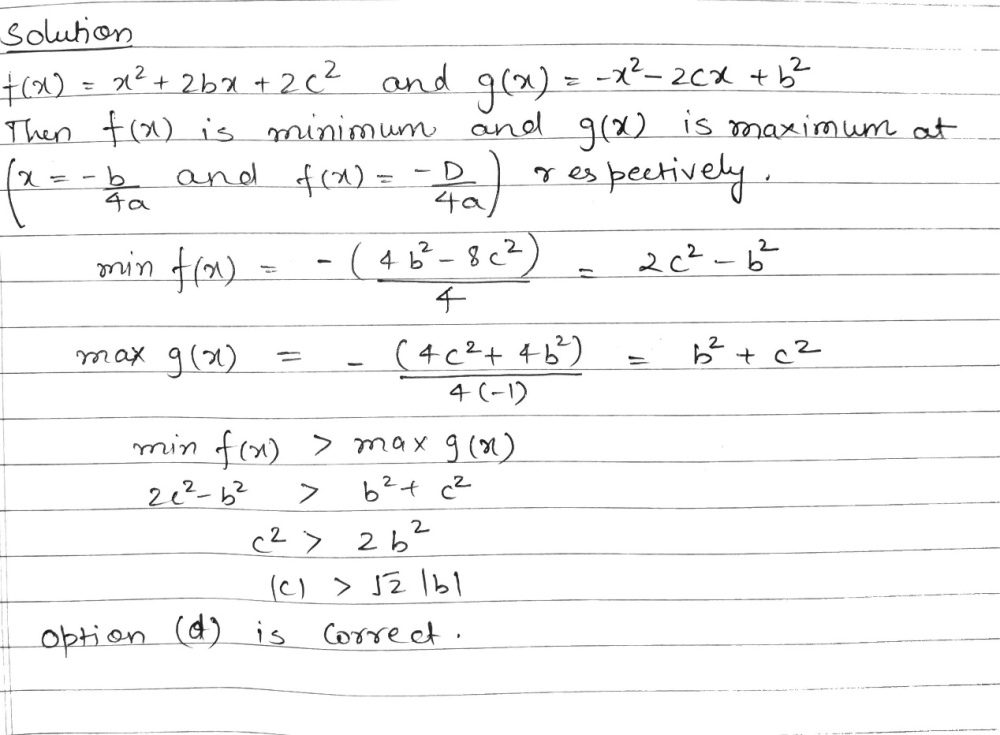 Solution
f(x) = x² + 2bx + 2c² and g(x) = -x² - 2cx + b²
Then f(x) is minimum and g(x) is maximum at
(x = -b/4a and f(x) = -D/4a) respectively.
min f(x) = -(4b² - 8c²)/4 = 2c² - b²
max g(x) = -(4c² + 4b²)/4(-1) = b² + c²
min f(x) > max g(x)
2c² - b² > b² + c²
c² > 2b²
|c| > √2 |b|
option (d) is correct.